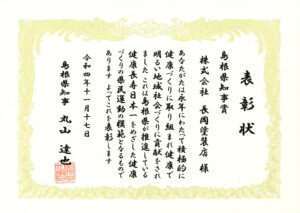 表彰状
島根県知事賞
株式会社 長岡塗装店 様
あなたがたは永年にわたって積極的に
健康づくりに取り組まれ健康で
明るい地域社会づくりに貢献をされ
ました これは島根県が推進している
健康長寿日本一をめざした健康
づくりの県民運動の模範となるもので
あります よってこれを表彰します
令和四年十一月十七日
島根県知事 丸山達也